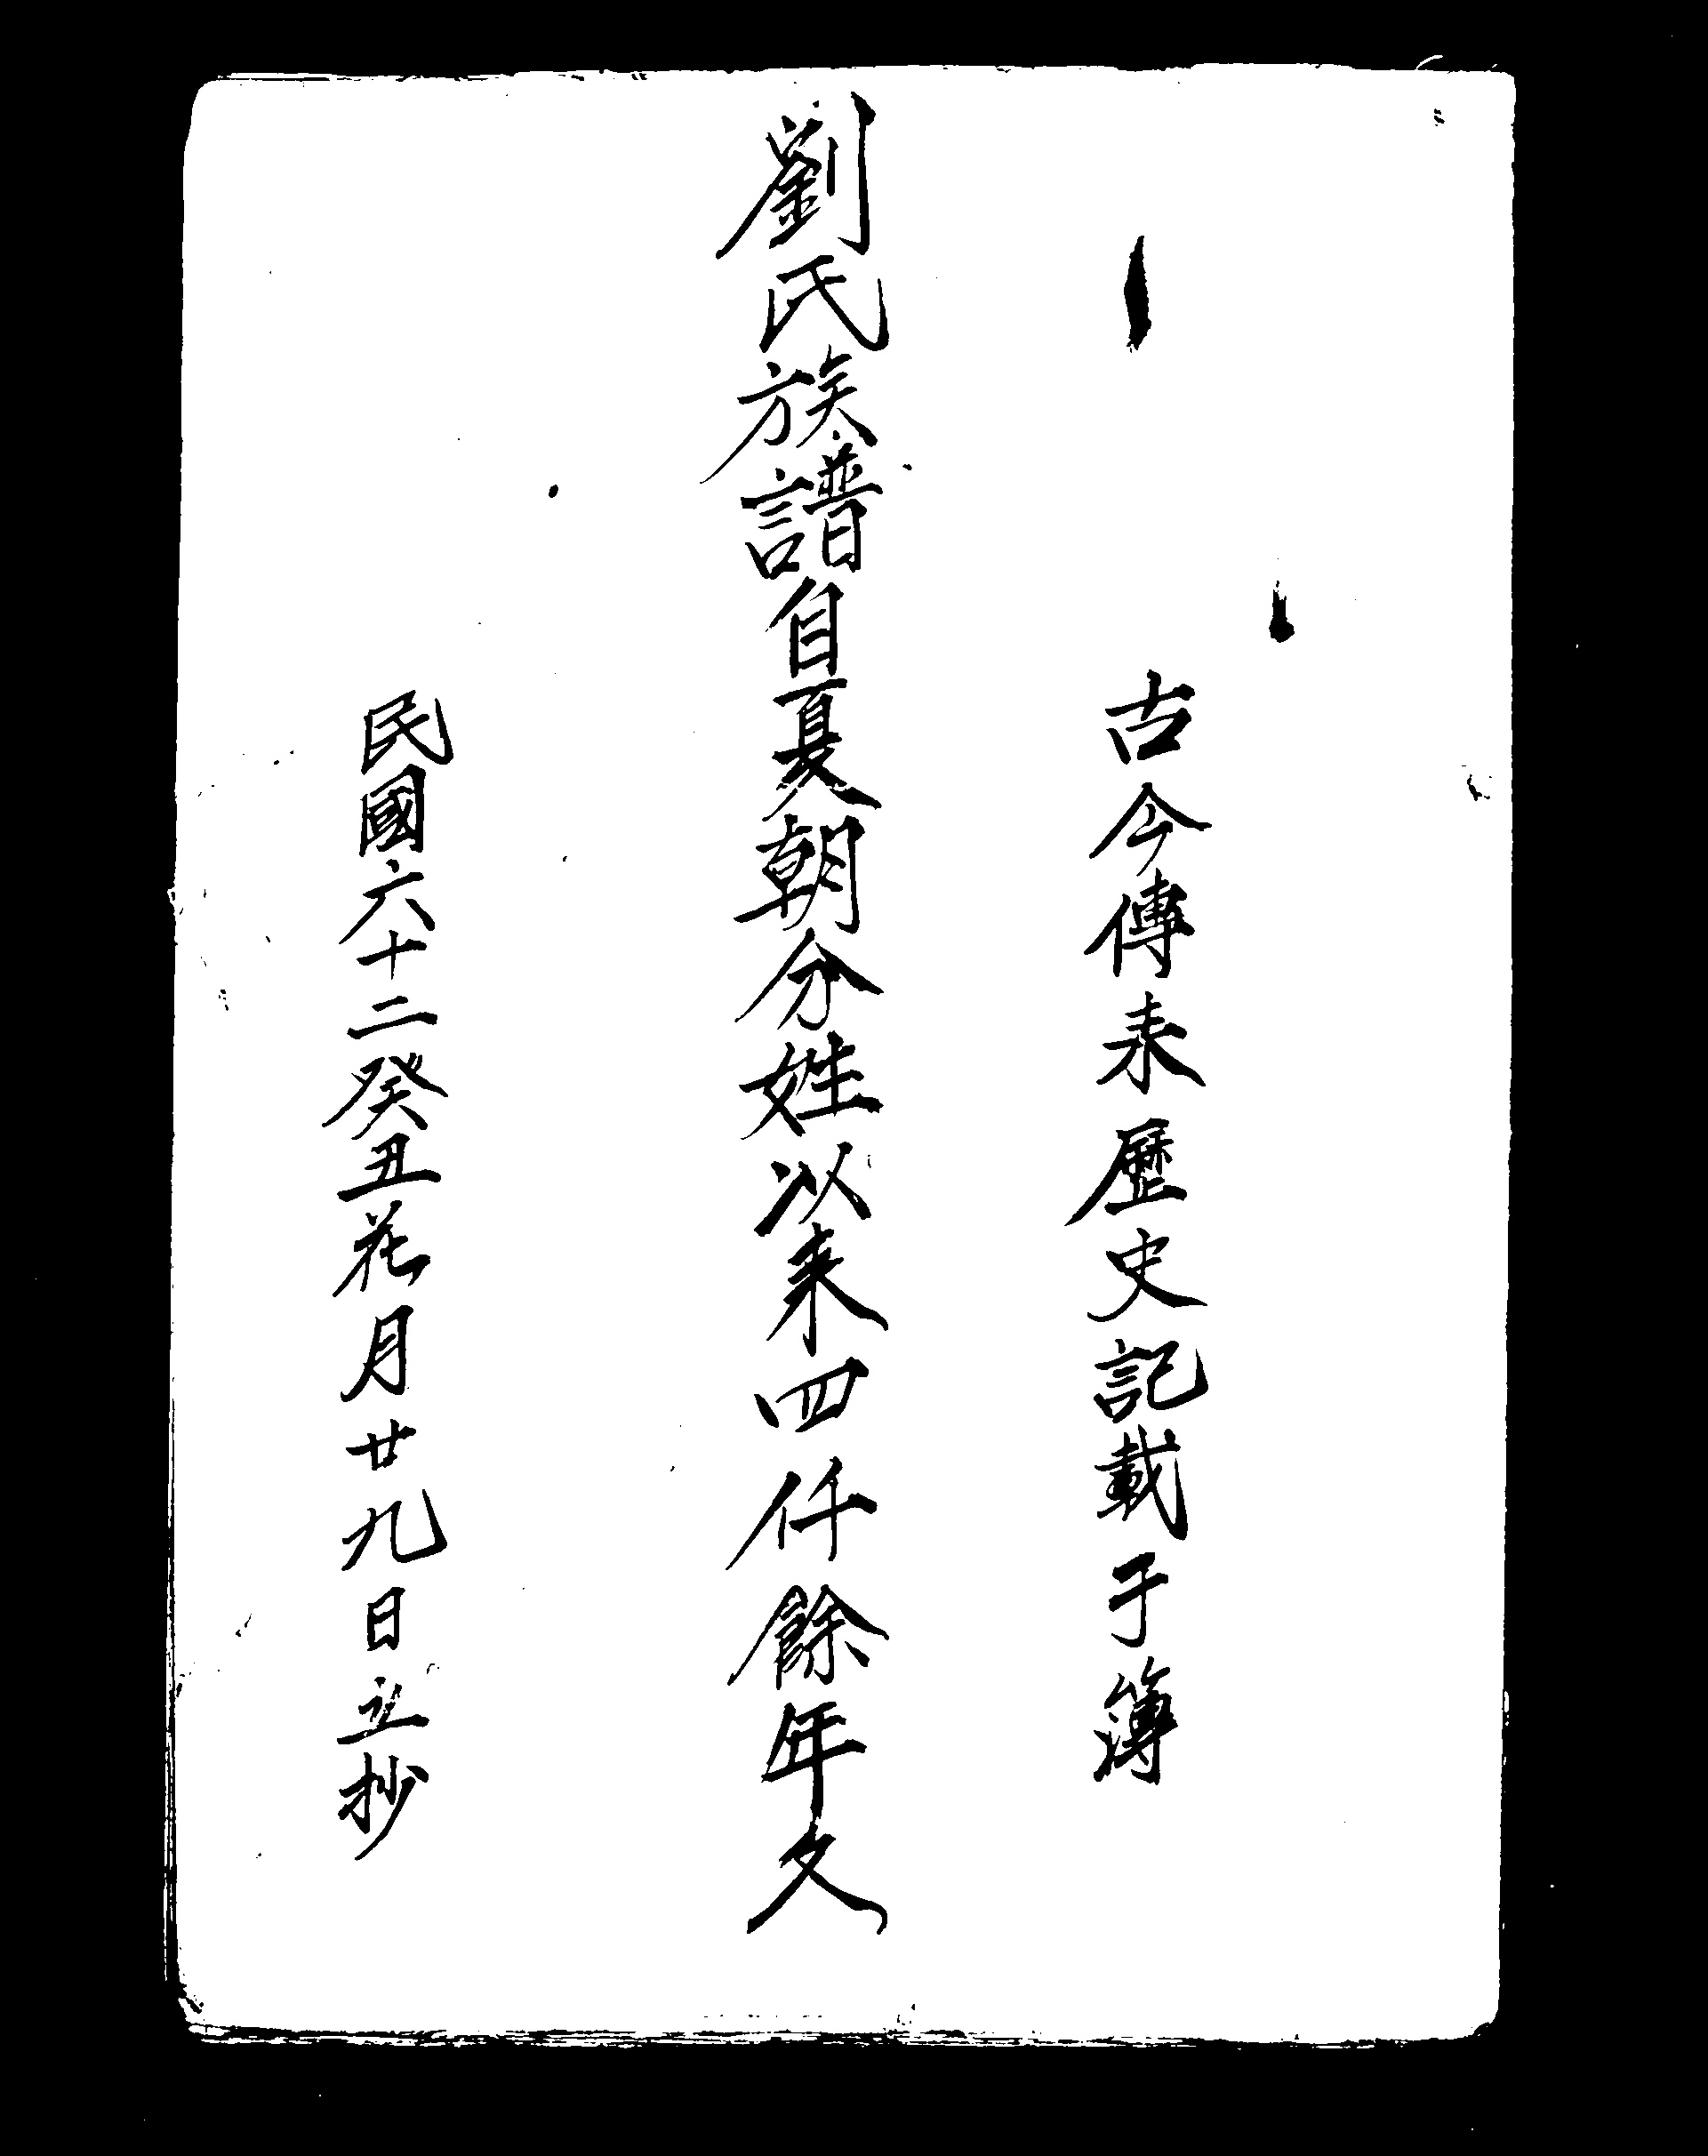 古今傳来歷史記載于簿
劉氏族譜自夏朝分姓以来四仟餘年久
民國六十二癸丑花月廿九日立抄